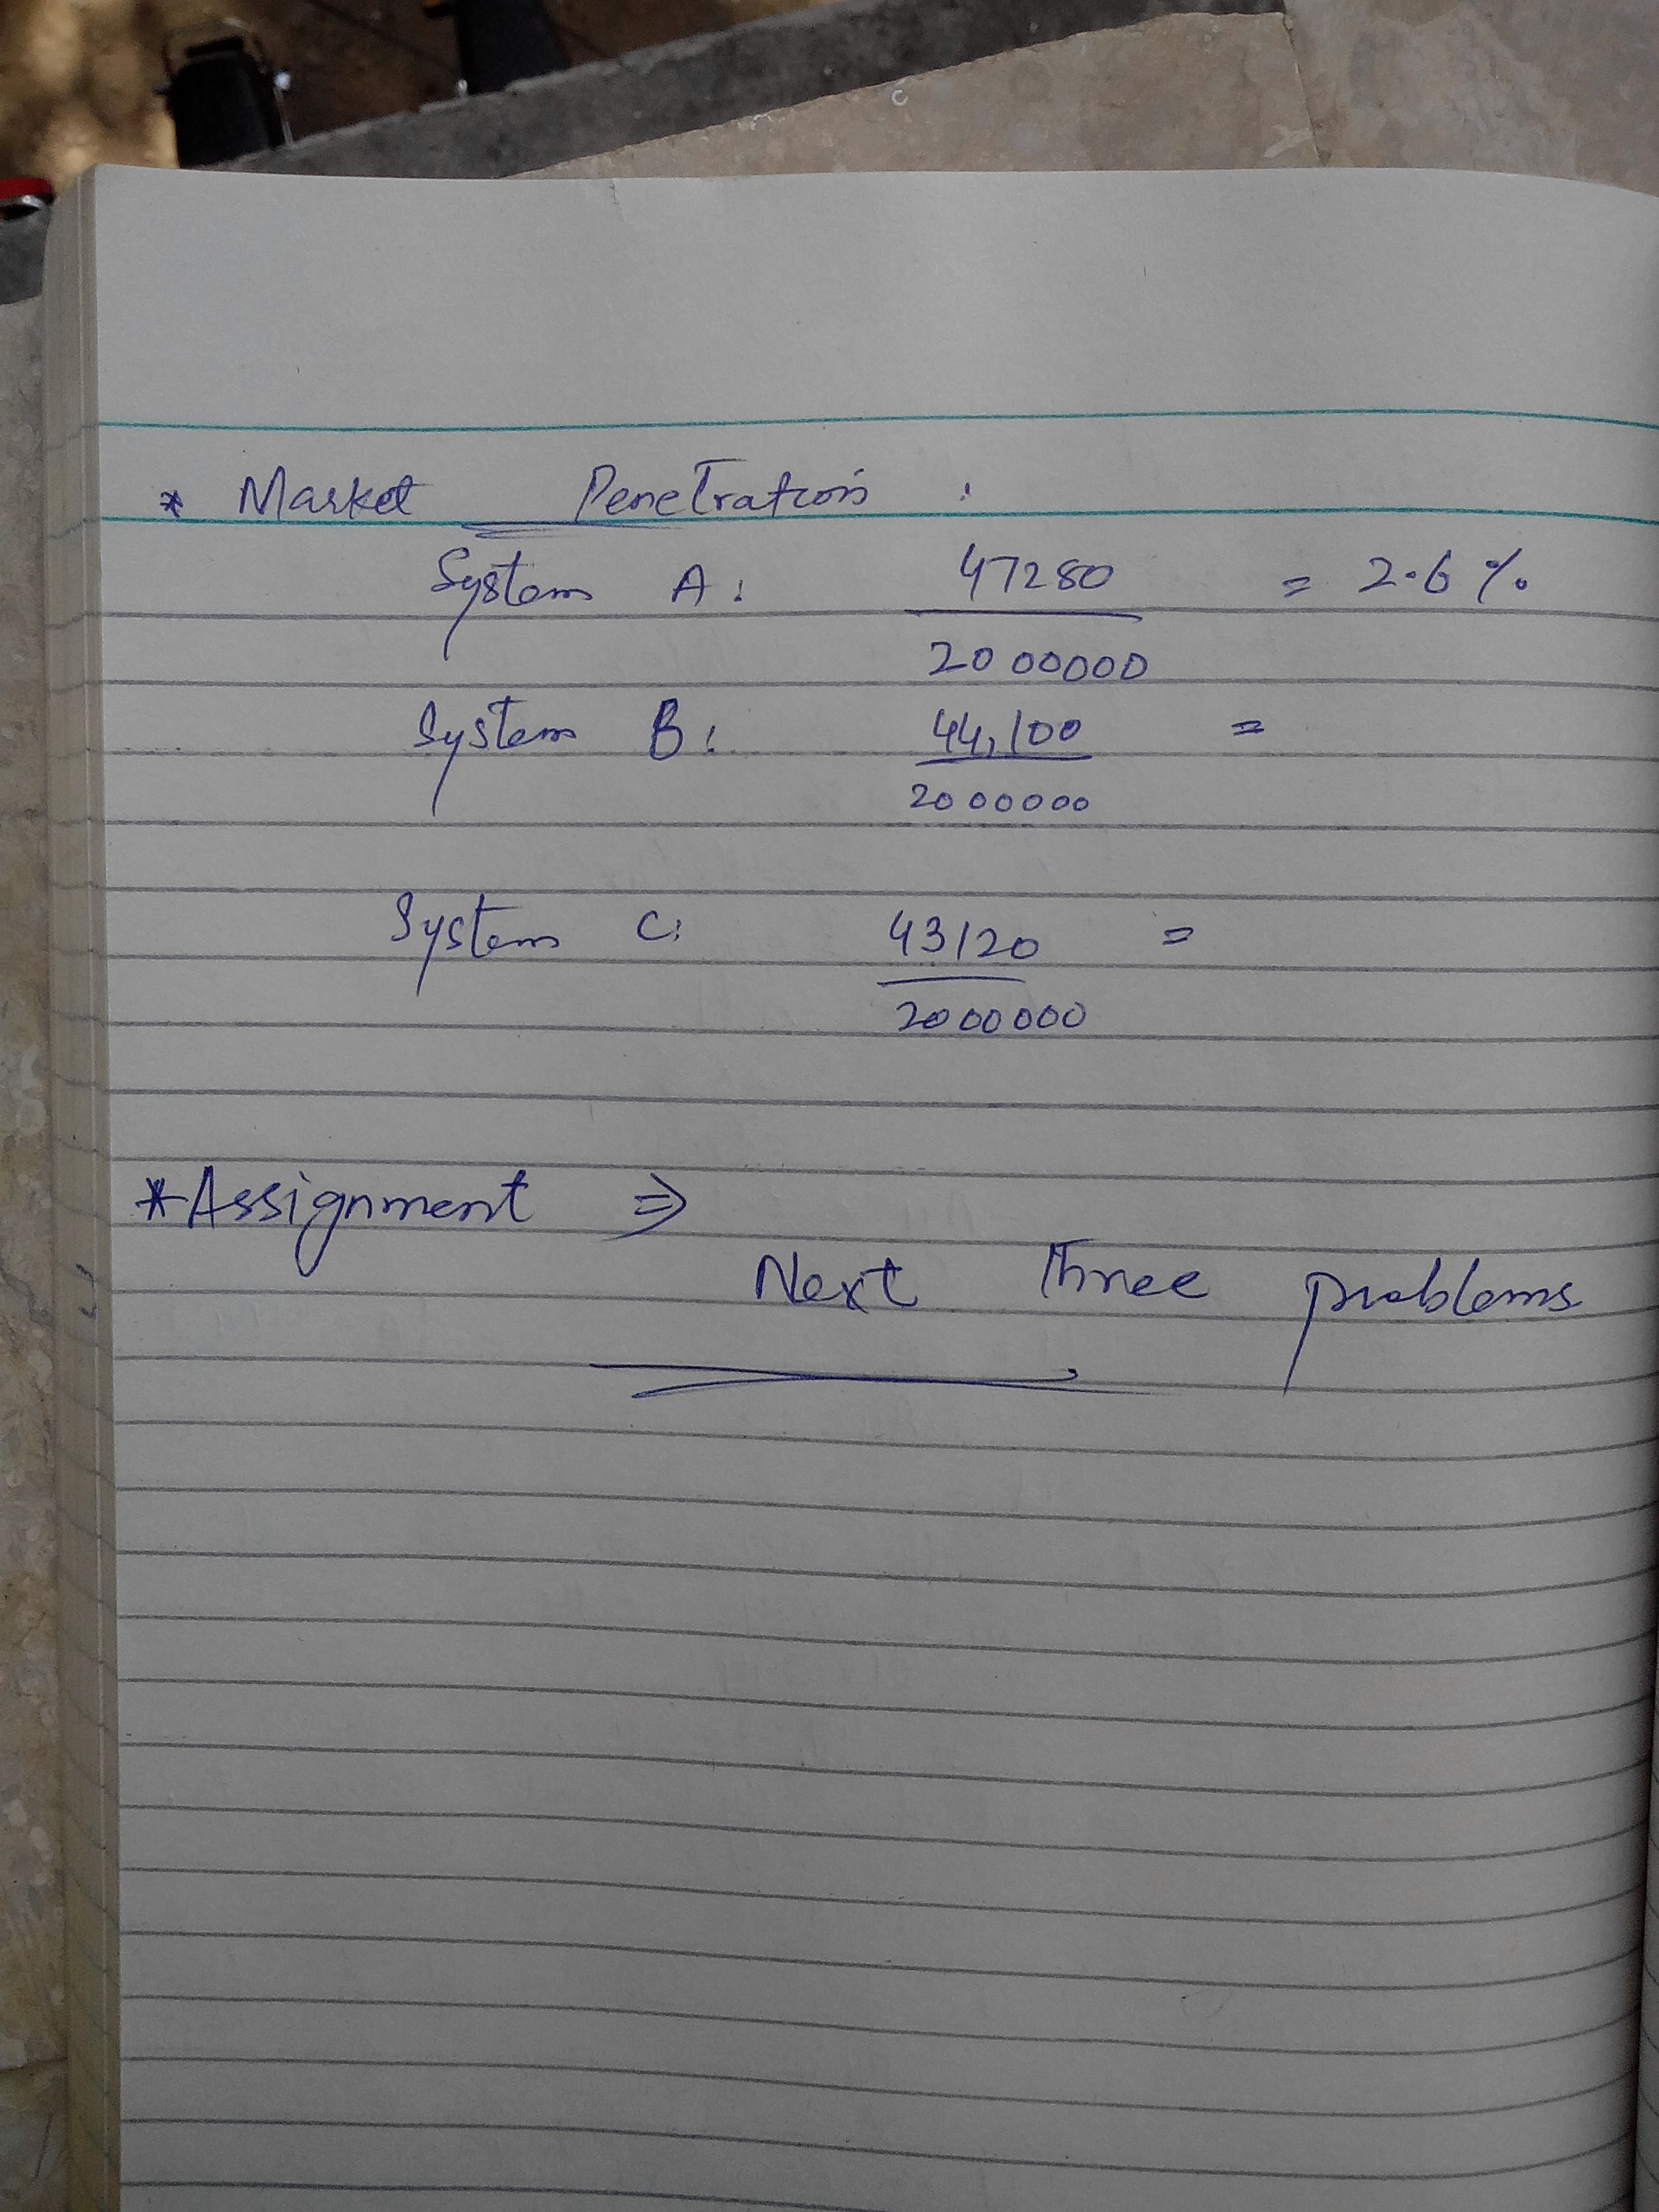 * Market Penetration :
System A : 47280 = 2.6 %
2000000
System B : 44,100 =
2000000
System C : 43120 =
2000000
* Assignment ⇒
Next three problems